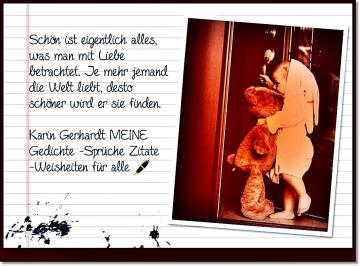 Schön ist eigentlich alles,
was man mit Liebe
betrachtet. Je mehr jemand
die Welt liebt, desto
schöner wird er sie finden.
Karin Gerhardt MEINE
Gedichte -Sprüche Zitate
-Weisheiten für alle